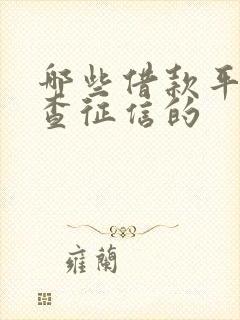 哪些借款平
查征信的
雍蘭